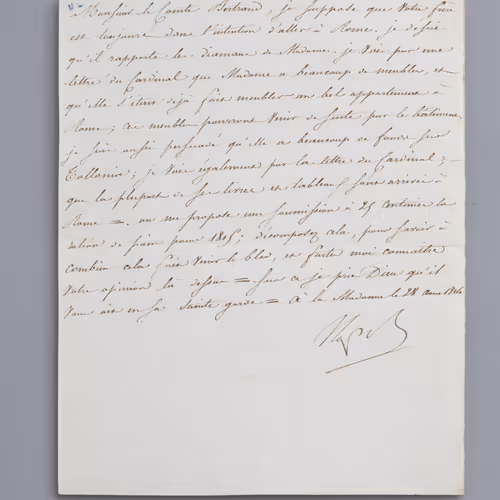 Monsieur le Comte Bertrand, je suppose que votre frère
est toujours dans l'intention d'aller à Rome. je désire
qu'il rapporte les diamans de Madame. je vois par une
lettre du Cardinal que Madame a beaucoup de meubles, et
qu'elle s'étais déjà fait meubler un bel appartement à
Rome; ces meubles pourront venir de suite par le bâtiment.
je suis aussi persuadé qu'elle a beaucoup de fonds sur
Tollonia; je vois également par la lettre du Cardinal,
que la plupart de ses livres et tableaux sons arrivés à
Rome =. on me propose une soumission à 25 centimes la
ration de pain pour 1815; décomposez cela, pour savoir à
combien cela fait venir le bled, et faites moi connaître
votre opinion la dessus = sur ce je prie Dieu qu'il
vous ait en sa sainte garde = à la Madone le 28 aous 1814
Nap